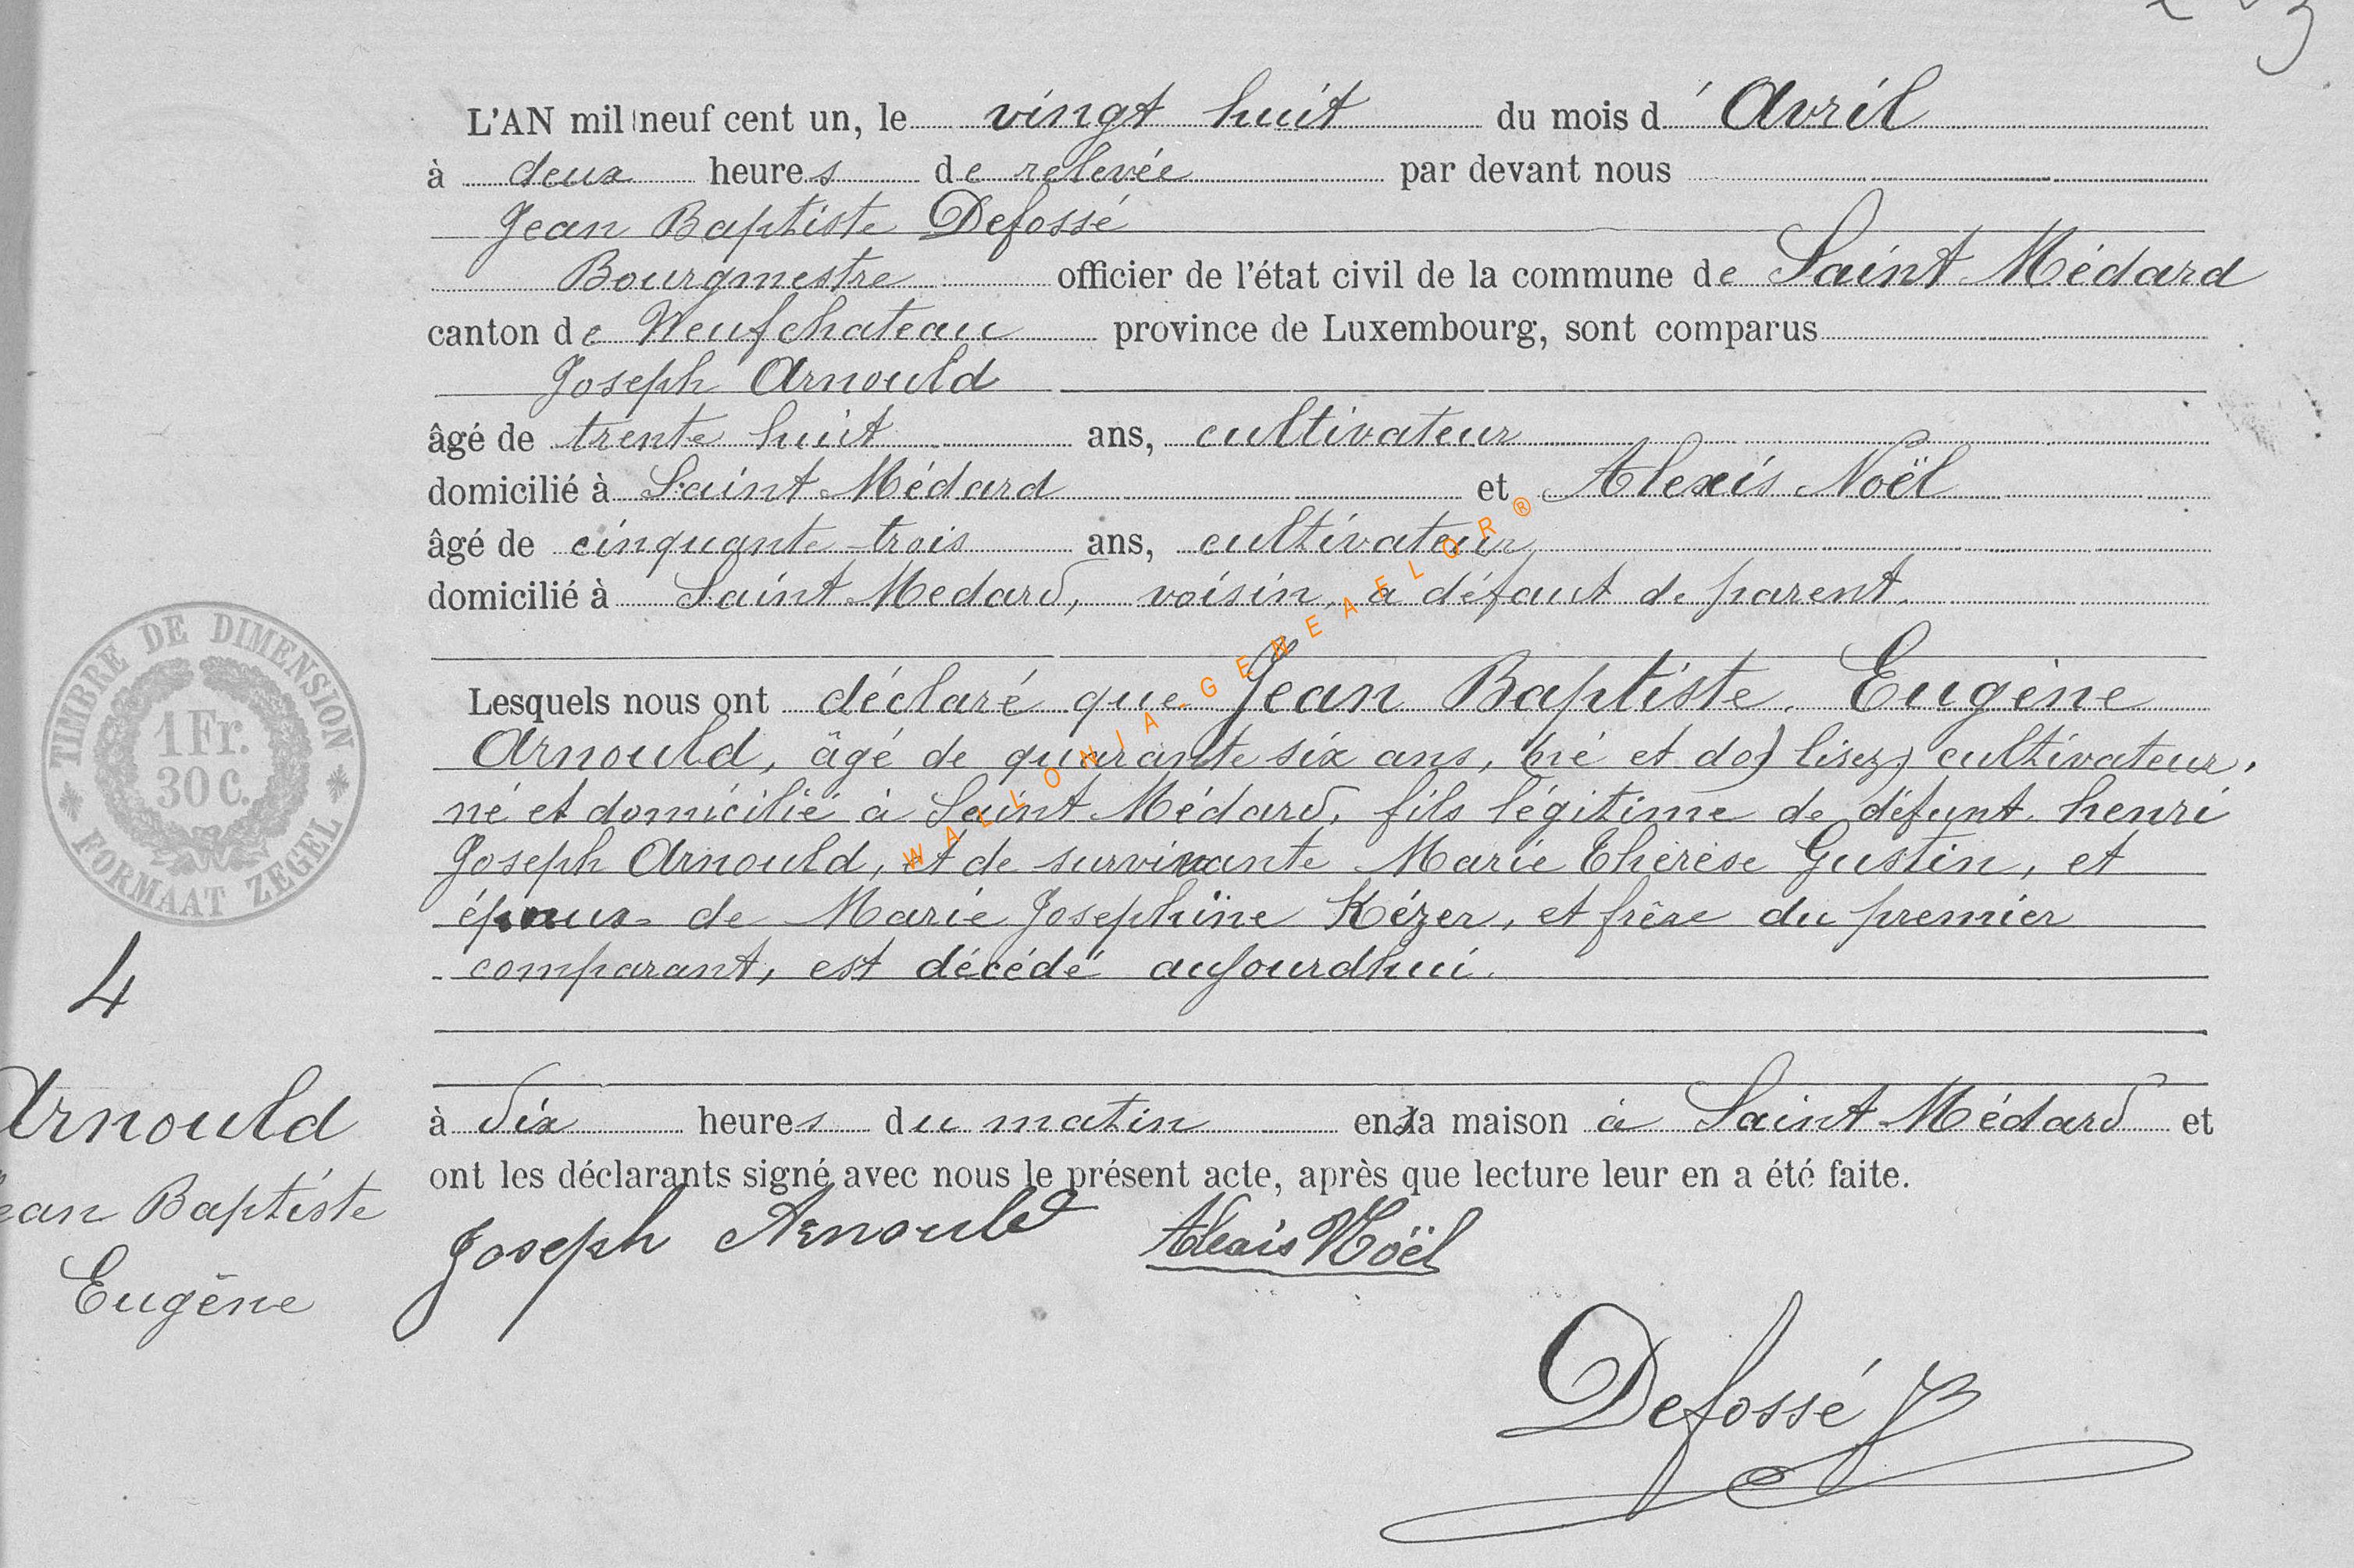 L'AN mil neuf cent un, le vingt huit du mois d' Avril
à deux heures de relevée par devant nous
Jean Baptiste Defossé
Bourgmestre officier de l'état civil de la commune de Saint Médard
canton de Neufchateau province de Luxembourg, sont comparus
Joseph Arnould
âgé de trente huit ans, cultivateur
domicilié à Saint Médard et Alexis Noël
âgé de cinquante trois ans, cultivateur,
domicilié à Saint Medard, voisin, à défaut de parent.
Lesquels nous ont déclaré que Jean Baptiste Eugène
Arnould, âgé de quarante six ans, (né et do) lisez) cultivateur,
né et domicilié à Saint Médard, fils légitime de défunt henri
Joseph Arnould, et de survivante Marie Thérèse Gustin, et
époux de Marie Josephine Kézer, et frère du premier
comparant, est décédé aujourdhui.
à dix heures du matin en sa maison à Saint Médard et
ont les déclarants signé avec nous le présent acte, après que lecture leur en a été faite.
Joseph Arnould Alexis Noël
Defossé JB
TIMBRE DE DIMENSION
1 Fr.
30 C.
FORMAAT ZEGEL
4
Arnould
Jean Baptiste
Eugène
WALLONIA-GENEAFLOR®